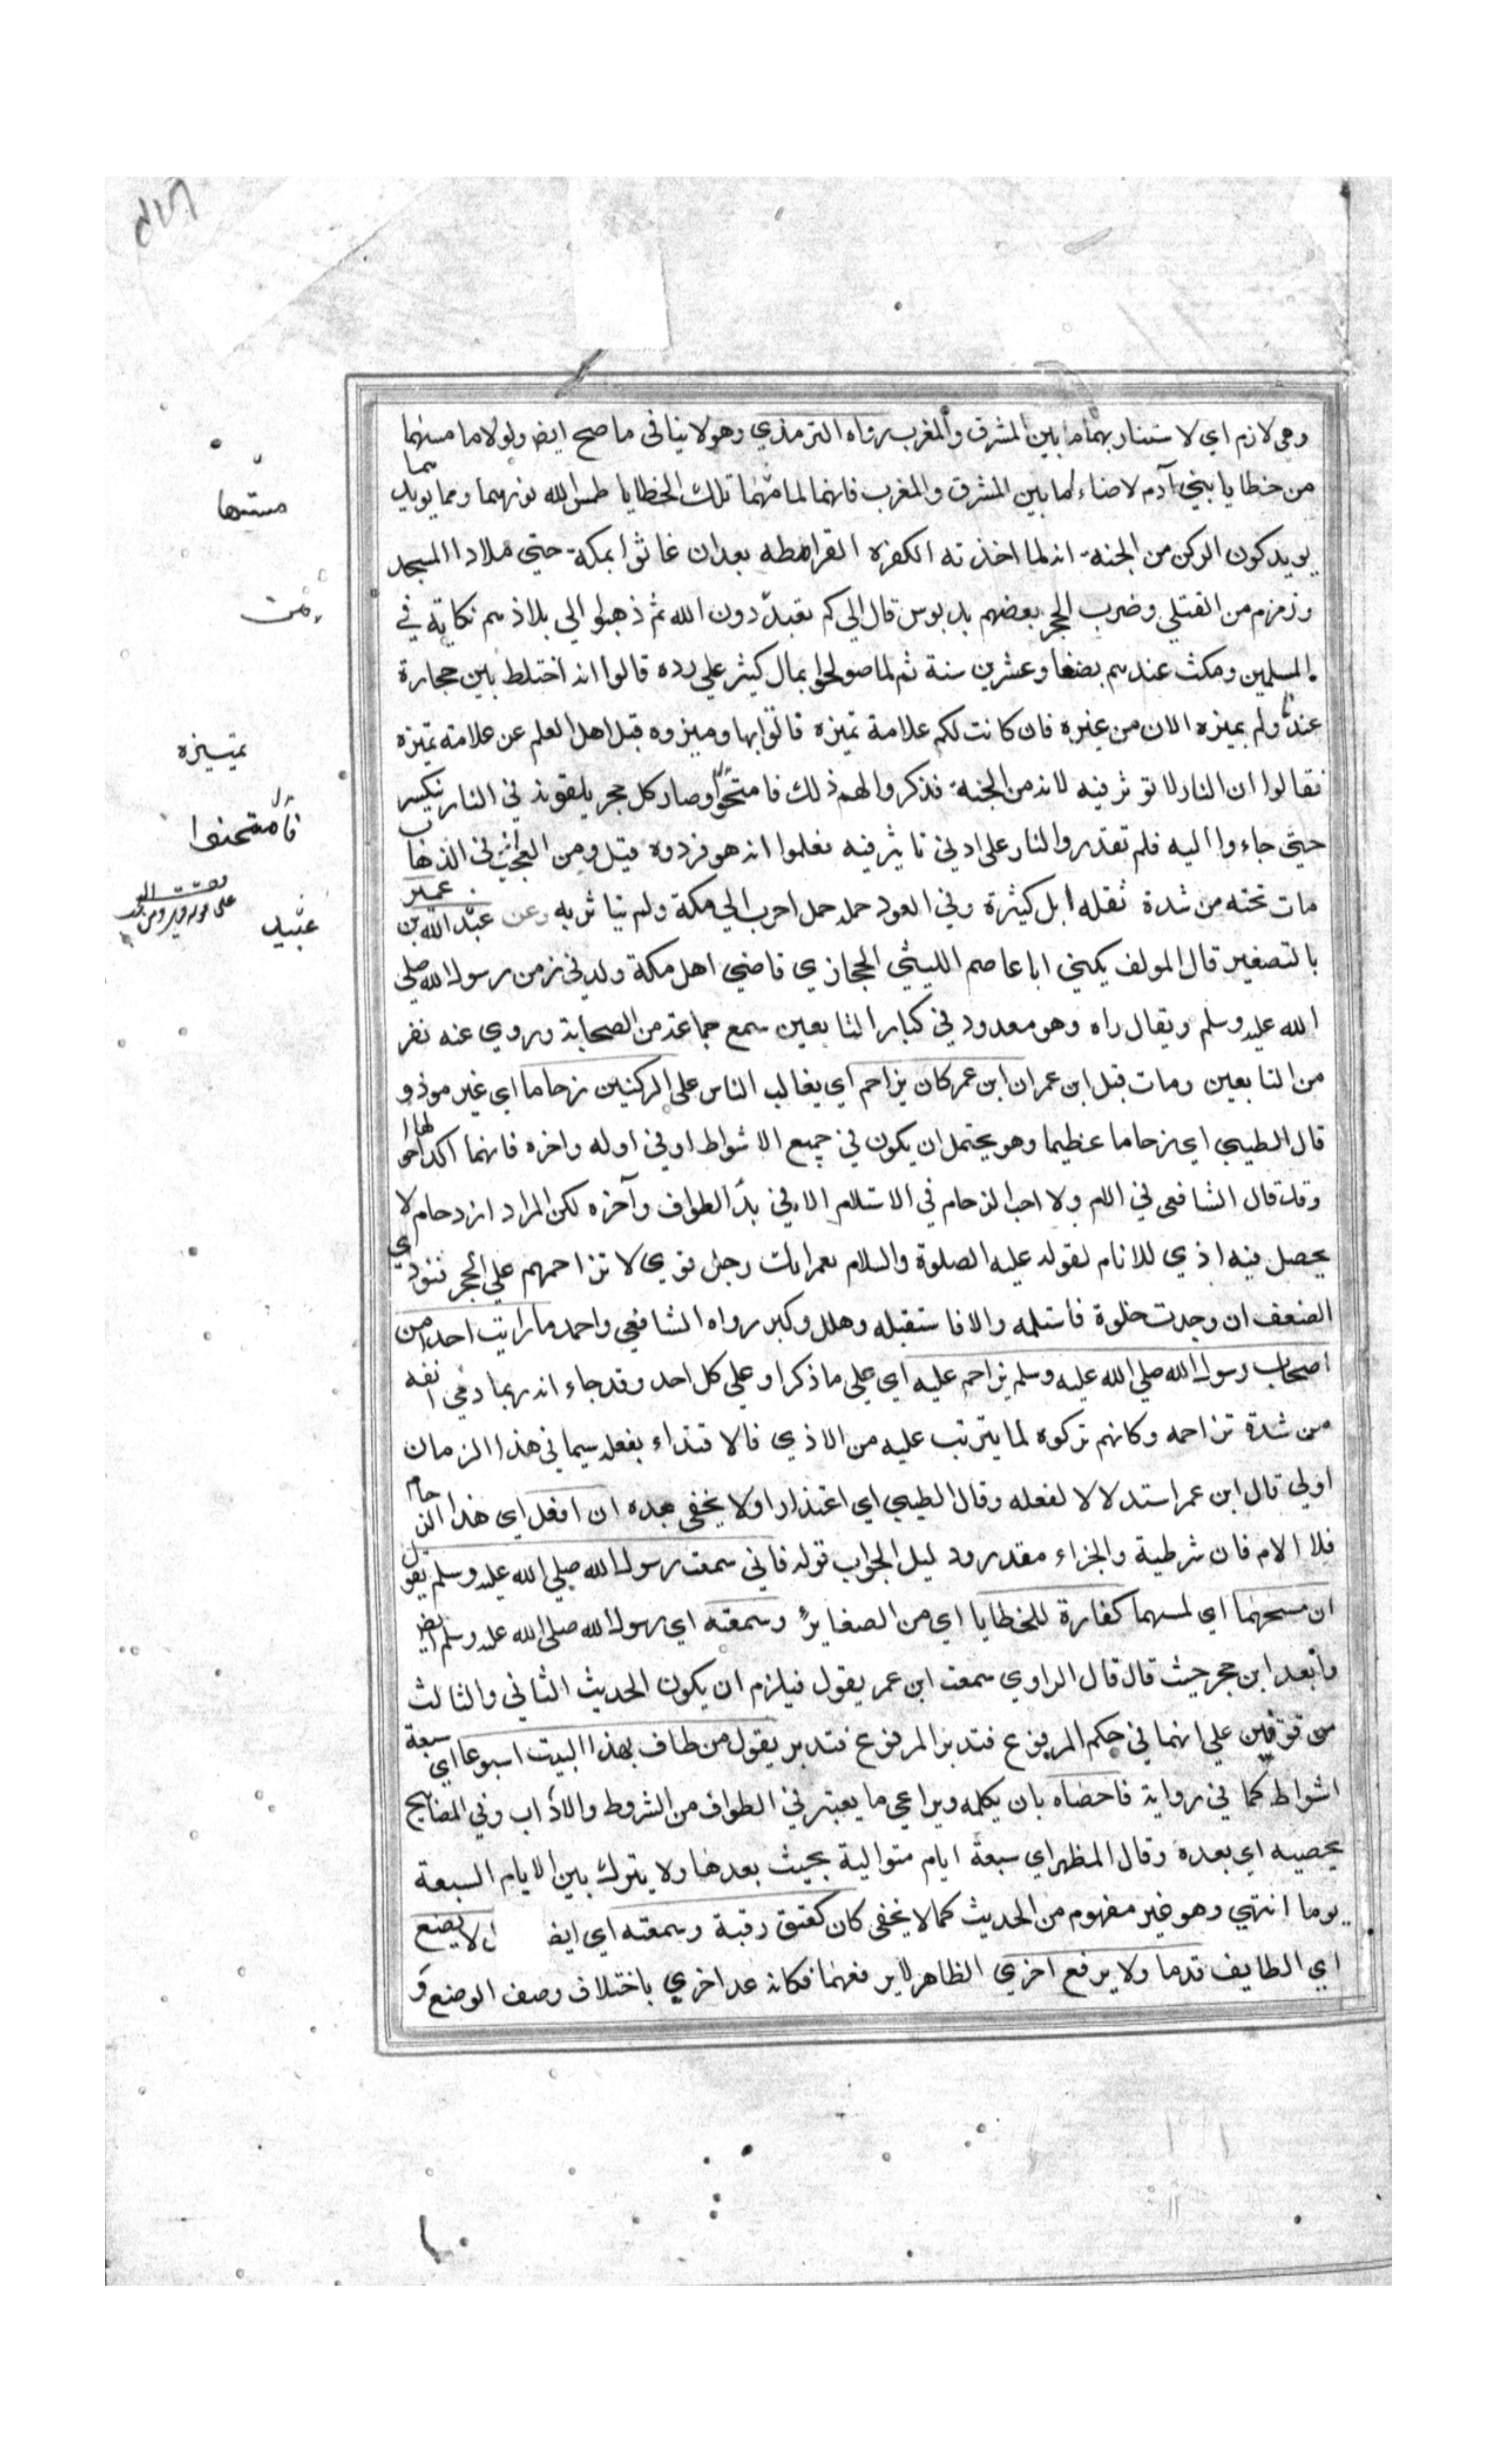 وهى لازم اي لاستنار بهما ما بين المشرق والمغرب رواه الترمذي وهو لا ينافى ما صح ايضا ولولا ما مسهما
من خطايا بني آدم لاضاءا ما بين المشرق والمغرب فانهما لما مستهما تلك الخطايا طمس الله نورهما ومما يويد
يويد كون الركن من الجنة انه لما اخذته الكفره القرامطه بعد ان غاثوا بمكة حتى ملاد االمسجد
وزمزم من القتلي وضرب الحجر بعضهم بدبوس قال الي كم تعبد دون الله ثم ذهبوا الي بلادهم نكاية في
المسلمين ومكث عندهم بضعا وعشرين سنة ثم لما صولحوا بمال كثير علي رده قالوا انه اختلط بين حجارة
عندنا ولم يميزه الان من غيره فان كانت لكم علامة تميزه فاتوا بها وميزوه قبل اهل العلم عن علامة تميزه
فقالوا ان النار لا توثر فيه لانه من الجنة فذكروا لهم ذلك فامتحنوا وصار كل حجر يلقونه في النار ينكسر
حتي جاءوا اليه فلم تقدر والنار على ادني تاثير فيه فعلموا انه هو فردوه قيل ومن العجب انه في الذهاب
مات تحته من شدة ثقله ابل كثيرة وفي العود حمله جمل اجرب الي مكة ولم يتاثر به وعن عبد الله بن عمير
بالتصغير قال المولف يكني ابا عاصم الليثي الحجازي قاضي اهل مكة ولد في زمن رسول الله صلي
الله عليه وسلم ويقال راه وهو معدود في كبار التابعين سمع جماعة من الصحابة وروي عنه نفر
من التابعين ومات قبل ابن عمر ان ابن عمر كان يزاحم اي يغالب الناس على الركنين زحاما اي غير موذ و
قال الطيبي اي زحاما عظيما وهو يحتمل ان يكون في جميع الاشواط او في اوله واخره فانهما اكد احوالها
وقد قال الشافعى في الام ولا احب الزحام في الاستلام الا في بدء الطواف وآخره لكن المراد ازدحام لا
يحصل فيه اذي للانام لقوله عليه الصلوة والسلام لعمر انك رجل قوي لا تزاحمهم علي الحجر فتوذي
الضعف ان وجدت خلوة فاستلمه والا فاستقبله وهلل وكبر رواه الشافعي واحمد ما رايت احدا من
اصحاب رسول الله صلي الله عليه وسلم يزاحم عليه اي علي ما ذكر او علي كل احد وقد جاء انه ربما دمي انفه
من شدة تزاحمه وكانهم تركوه لما يترتب عليه من الاذي فالاقتداء بفعلهم سيما في هذا الزمان
اولي قال ابن عمر استدلالا لفعله وقال الطيبي اي اعتذارا ولا يخفى بعده ان افعل اي هذا الزحام
فلا الام فان شرطية والجزاء مقدر ودليل الجواب قوله فاني سمعت رسول الله صلي الله عليه وسلم يقول
ان مسحهما اي لمسهما كفارة للخطايا اي من الصغاير وسمعته اي رسول الله صلى الله عليه وسلم ايضا
وابعد ابن حجر حيث قال قال الراوي سمعت ابن عمر يقول فيلزم ان يكون الحديث الثاني والثالث
موقوفين علي انهما في حكم المرفوع فتدبر المرفوع فتدبر يقول من طاف بهذا البيت اسبوعا اي سبعة
اشواط كما في رواية فاحصاه بان يكمله ويراعي ما يعتبر في الطواف من الشروط والاداب وفي المصابيح
يحصيه اي بعده وقال المظهر اي سبعة ايام متوالية بحيث بعدها ولا يترك بين الايام السبعة
يوما انتهي وهو غير مفهوم من الحديث كما لا يخفى كان كعتق رقبة وسمعته اي ايضا لا يضع
اي الطايف قدما ولا يرفع اخري الظاهر لا يرفعهما فكانه عد اخري باختلاف وصف الوضع و
مستها
تميزه
فامتحنوا
عبيد